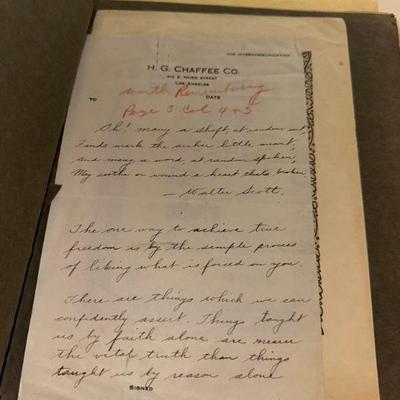 FOR INTERCOMMUNICATION
H. G. CHAFFEE CO.
LOS ANGELES
TO DATE
Worth Remembering
Page 3 Col 4 & 5
Oh! many a shaft at random sent,
Finds mark the archer little meant;
and many a word, at random spoken,
May soothe or wound a heart thats broken.
— Walter Scott.
The one way to achieve true
freedom is by the simple process
of liking what is forced on you.
There are things which we can
confidently assert. Things taught
us by faith alone are nearer
the vital truth than things
taught us by reason alone
SIGNED